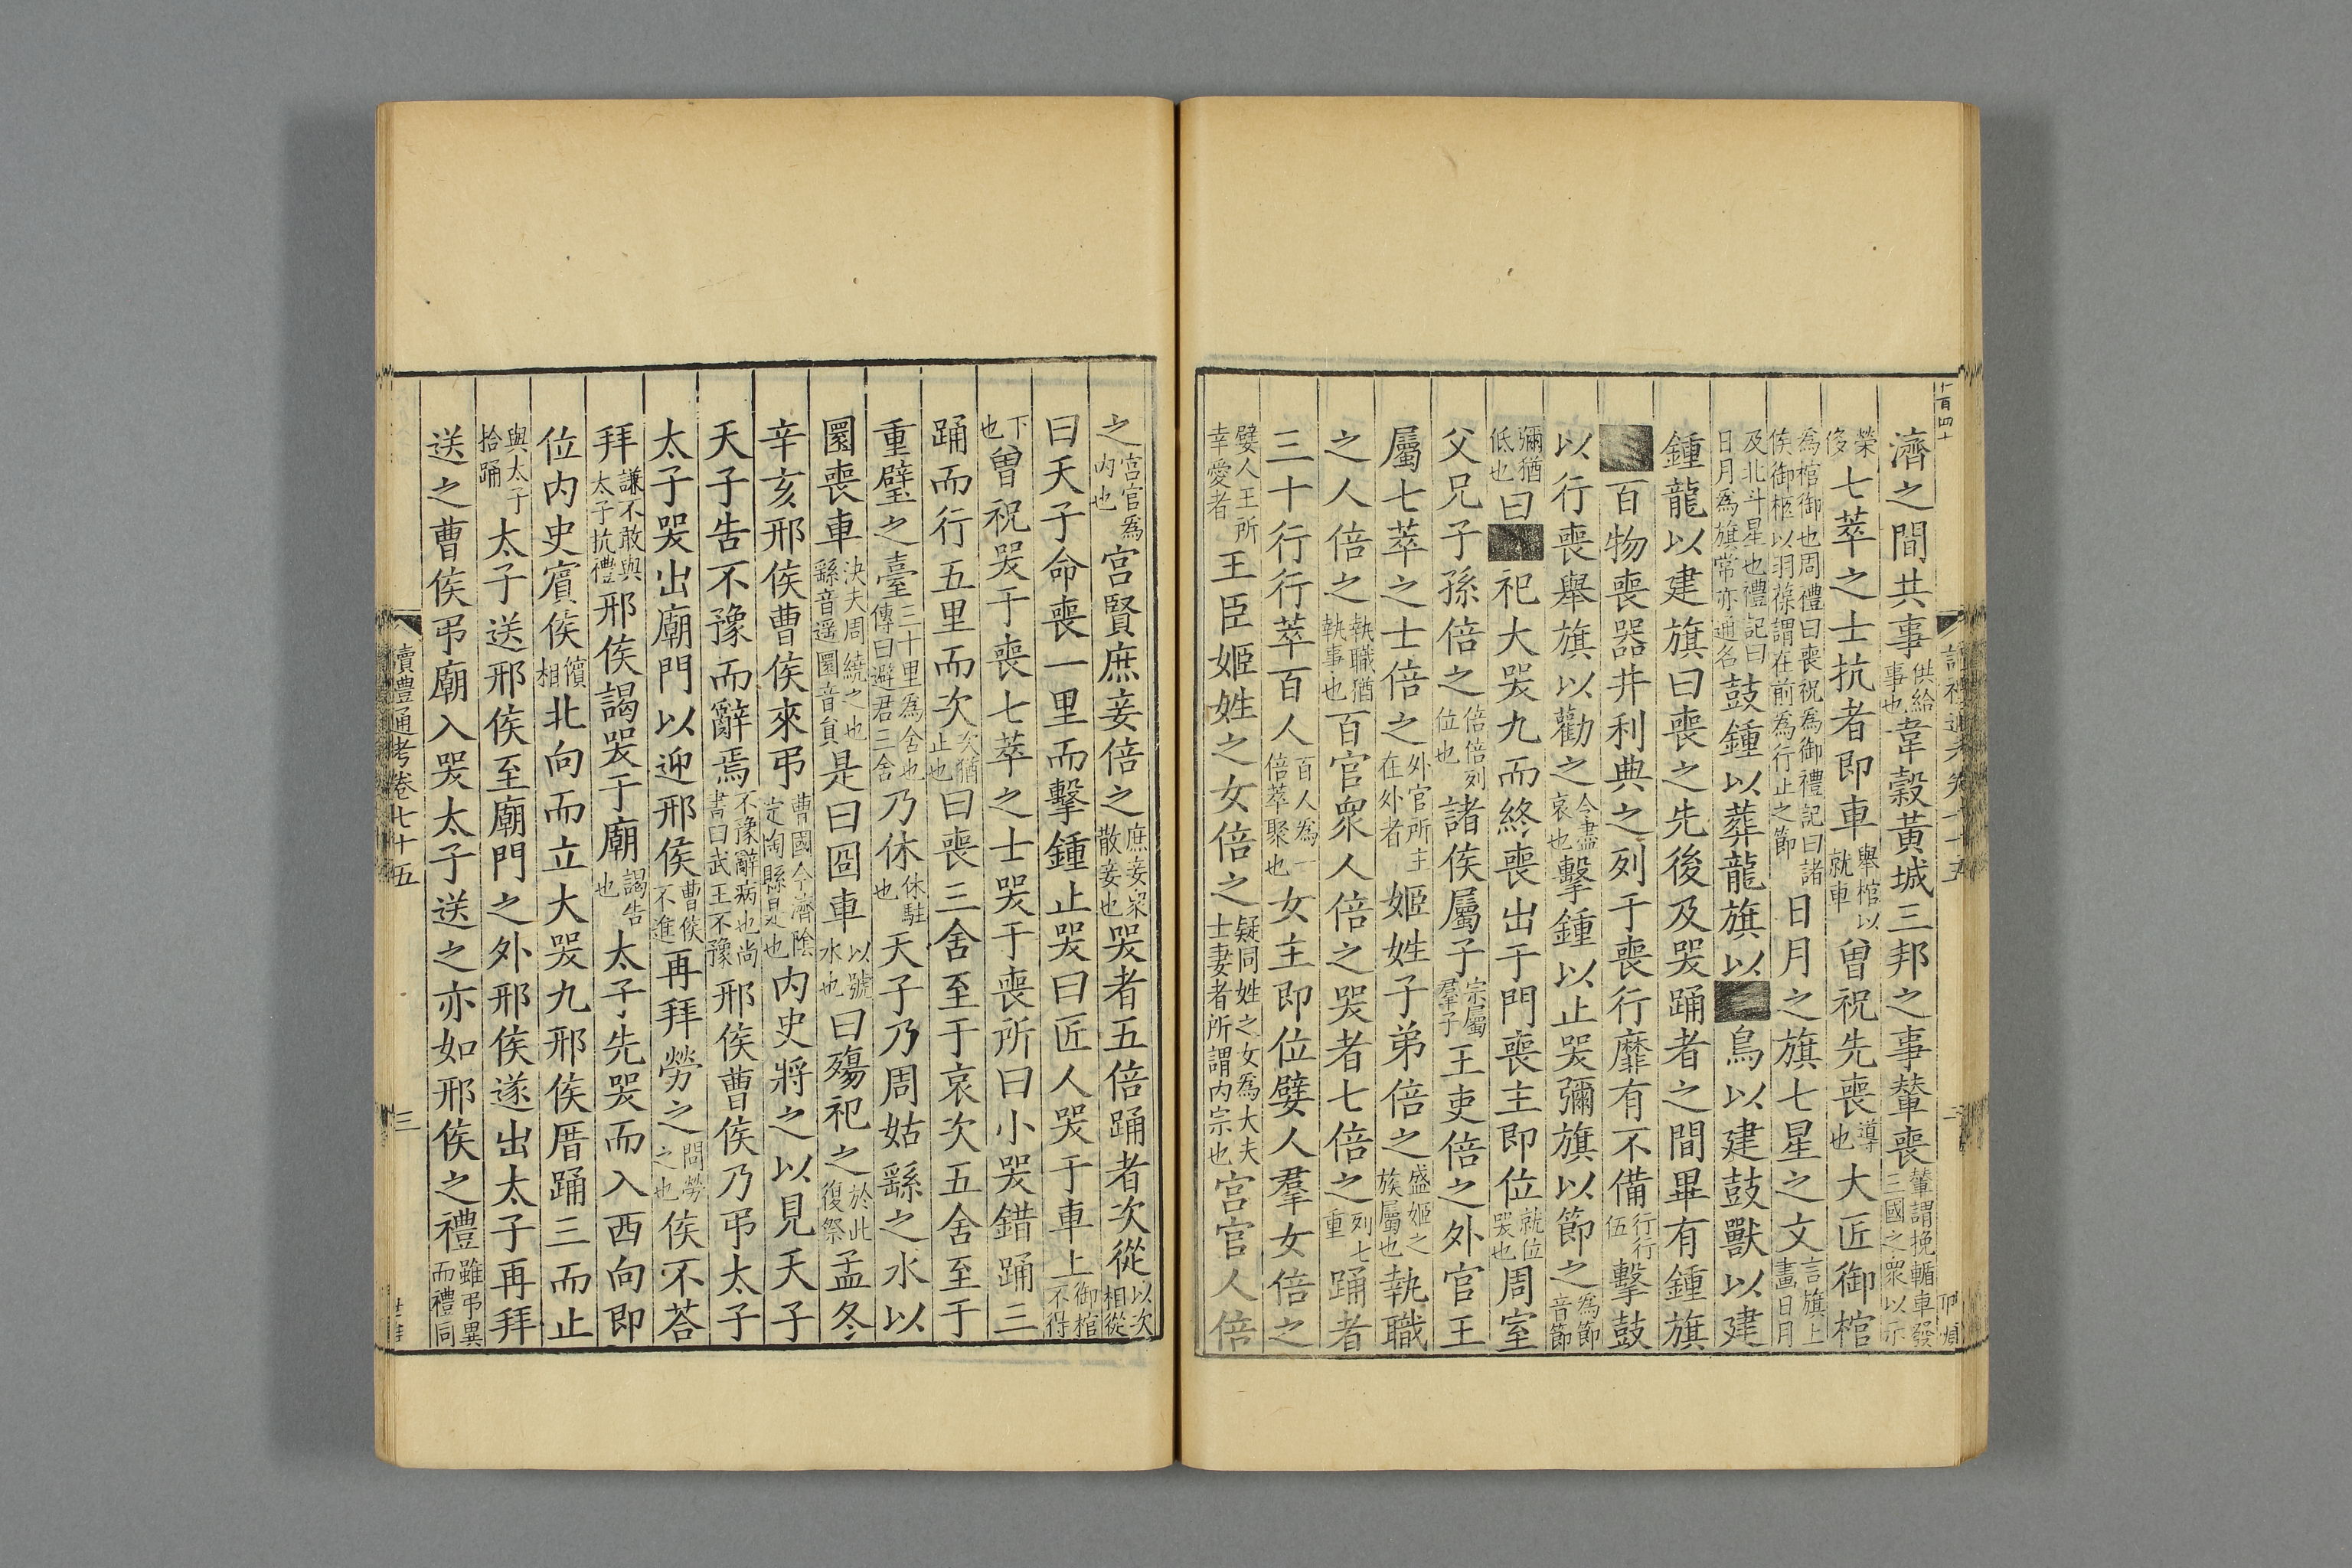 濟之間共事供給事也韋穀黃城三邦之事輦喪輦謂挽輴車發三國之衆以示
榮侈七萃之士抗者即車舉棺以就車曾祝先喪導也大匠御棺
為棺御也周禮曰喪祝為御禮記曰諸侯御柩以羽葆謂在前為行止之節日月之旗七星之文言旗上畫日月
及北斗星也禮記曰日月為旗常亦通名鼓鍾以葬龍旗以■鳥以建鼓獸以建
鍾龍以建旗曰喪之先後及哭踊者之間畢有鍾旗
■百物喪器井利典之列于喪行靡有不備行行伍擊鼓
以行喪舉旗以勸之令盡哀也擊鍾以止哭彌旗以節之為節音節
彌猶低也曰■祀大哭九而終喪出于門喪主即位就位哭也周室
父兄子孫倍之倍倍列位也諸侯屬子宗屬羣子王吏倍之外官王
屬七萃之士倍之外官所主在外者姬姓子弟倍之盛姬之族屬也執職
之人倍之執職猶執事也百官眾人倍之哭者七倍之列七重踊者
三十行行萃百人百人為一倍萃聚也女主即位嬖人羣女倍之
嬖人王所幸愛者王臣姬姓之女倍之疑同姓之女為大夫士妻者所謂內宗也宮官人倍
之宮官為內也宮賢庶妾倍之庶妾眾散妾也哭者五倍踊者次從以次相從
曰天子命喪一里而擊鍾止哭曰匠人哭于車上御棺不得
下也曾祝哭于喪七萃之士哭于喪所曰小哭錯踊三
踊而行五里而次次猶止也曰喪三舍至于哀次五舍至于
重璧之臺三十里為舍也傳曰避君三舍乃休休駐也天子乃周姑繇之水以
圜喪車決夫周繞之也繇音遥圜音員是曰囧車以號水也曰殤祀之於此復祭孟冬
辛亥邢侯曹侯來弔曹國今濟陰定陶縣是也內史將之以見天子
天子告不豫而辭焉不豫辭病也尚書曰武王不豫邢侯曹侯乃弔太子
太子哭出廟門以迎邢侯曹侯不進再拜勞之問勞之也侯不荅
拜謙不敢與太子抗禮邢侯謁哭于廟謁告也太子先哭而入西向即
位內史賓侯儐相北向而立大哭九邢侯厝踊三而止
與太子拾踊太子送邢侯至廟門之外邢侯遂出太子再拜
送之曹侯弔廟入哭太子送之亦如邢侯之禮雖弔異而禮同
讀禮通考卷七十五
三